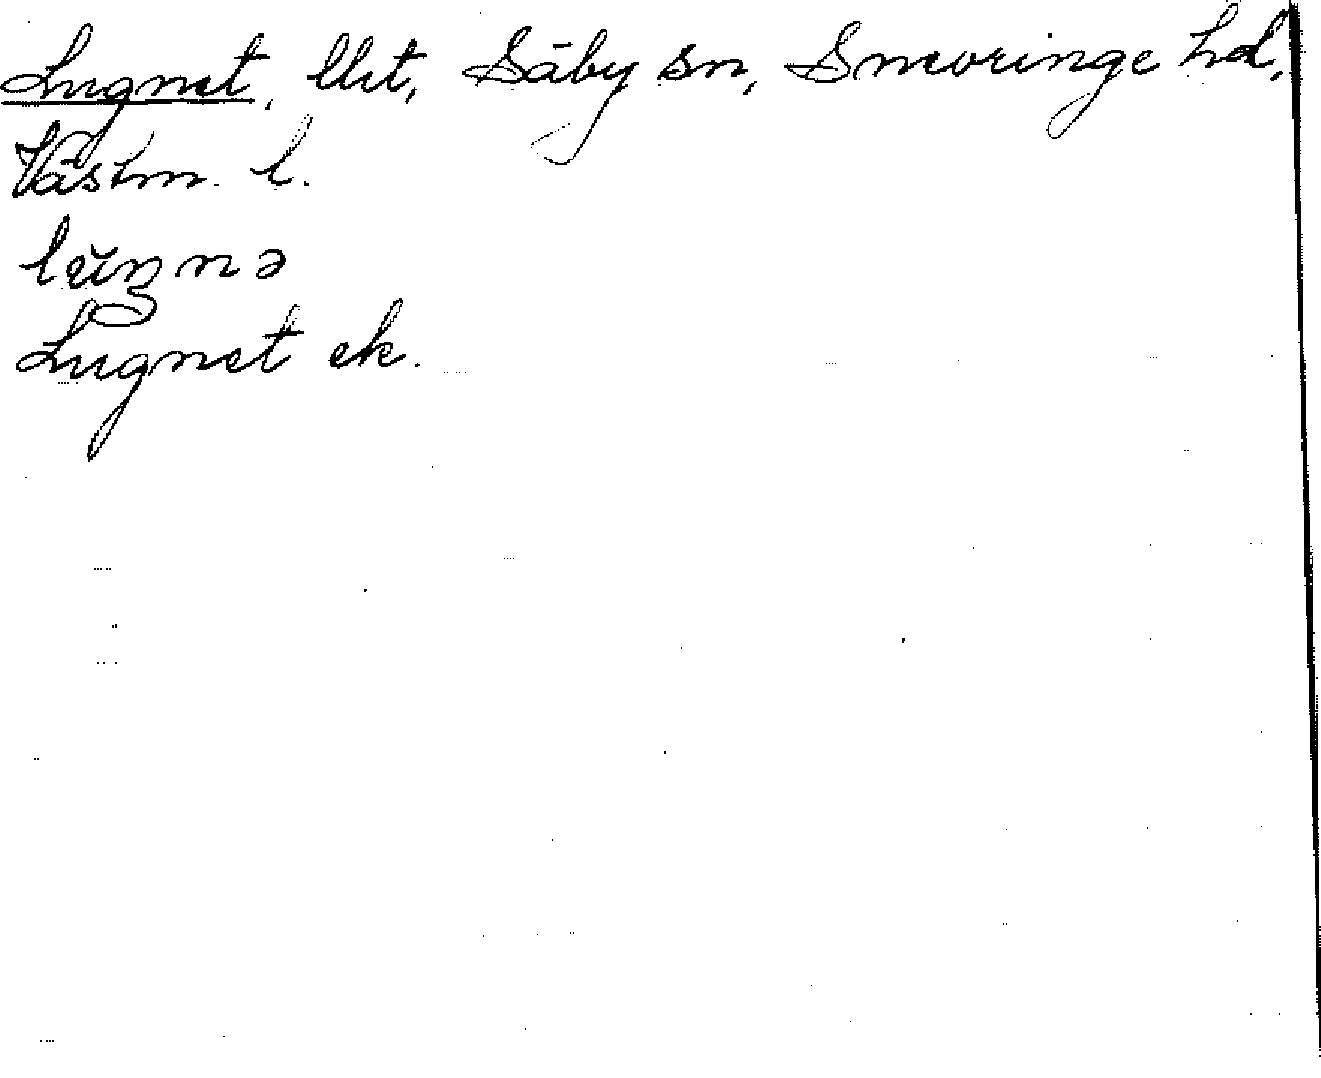 Lugnet, lht, Säby sn, Snevringe hd,
Västm. l.
Lugnet ek.